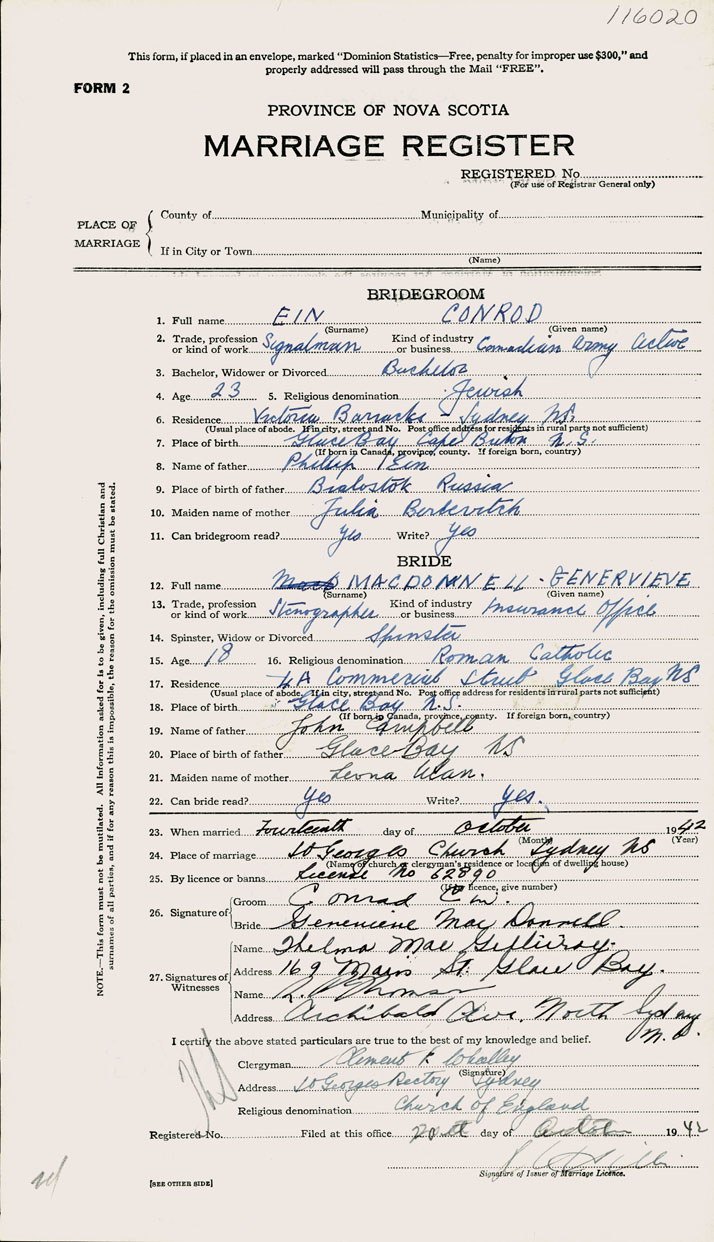 116020
This form, if placed in an envelope, marked "Dominion Statistics—Free, penalty for improper use $300," and
properly addressed will pass through the Mail "FREE".
FORM 2
PROVINCE OF NOVA SCOTIA
MARRIAGE REGISTER
REGISTERED No.
(For use of Registrar General only)
PLACE OF MARRIAGE
County of Municipality of
If in City or Town
(Name)
BRIDEGROOM
1. Full name EIN CONROD
(Surname) (Given name)
2. Trade, profession or kind of work Signalman Kind of industry or business Canadian Army Active
3. Bachelor, Widower or Divorced Bachelor
4. Age 23 5. Religious denomination Jewish
6. Residence Victoria Barracks - Sydney NS.
(Usual place of abode. If in city, street and No. Post office address for residents in rural parts not sufficient)
7. Place of birth Glace Bay Cape Breton N.S.
(If born in Canada, province, county. If foreign born, country)
8. Name of father Phillip Ein
9. Place of birth of father Bialostok Russia
10. Maiden name of mother Julia
11. Can bridegroom read? Yes Write? Yes
BRIDE
12. Full name MACDONNELL - GENERVIEVE
(Surname) (Given name)
13. Trade, profession or kind of work Stenographer Kind of industry or business Insurance Office
14. Spinster, Widow or Divorced Spinster
15. Age 18 16. Religious denomination Roman Catholic
17. Residence 4A Commercial Street Glace Bay NS
(Usual place of abode. If in city, street and No. Post office address for residents in rural parts not sufficient)
18. Place of birth Glace Bay N.S.
(If born in Canada, province, county. If foreign born, country)
19. Name of father John Campbell
20. Place of birth of father Glace Bay NS
21. Maiden name of mother Leona
22. Can bride read? Yes Write? Yes.
23. When married Fourteenth day of October 1942
(Month) (Year)
24. Place of marriage St Georges Church Sydney NS
(Name of church or clergyman's residence or location of dwelling house)
25. By licence or banns License No 62890
(If by licence, give number)
26. Signature of
Groom Conrad Ein.
Bride Genevieve Mac Donnell.
27. Signatures of Witnesses
Name Thelma Mac Gillivray.
Address 169 Main St. Glace Bay.
Name Thomas
Address Archibald Ave. North Sydney
N.S.
I certify the above stated particulars are true to the best of my knowledge and belief.
Clergyman Clement F. Whalley
(Signature)
Address St Georges Rectory Sydney
Religious denomination Church of England
Registered No. Filed at this office 20th day of October 1942
Signature of Issuer of Marriage Licence.
[SEE OTHER SIDE]
NOTE.—This form must not be mutilated. All Information asked for is to be given, including full Christian and
surnames of all parties, and if for any reason this is impossible, the reason for the omission must be stated.